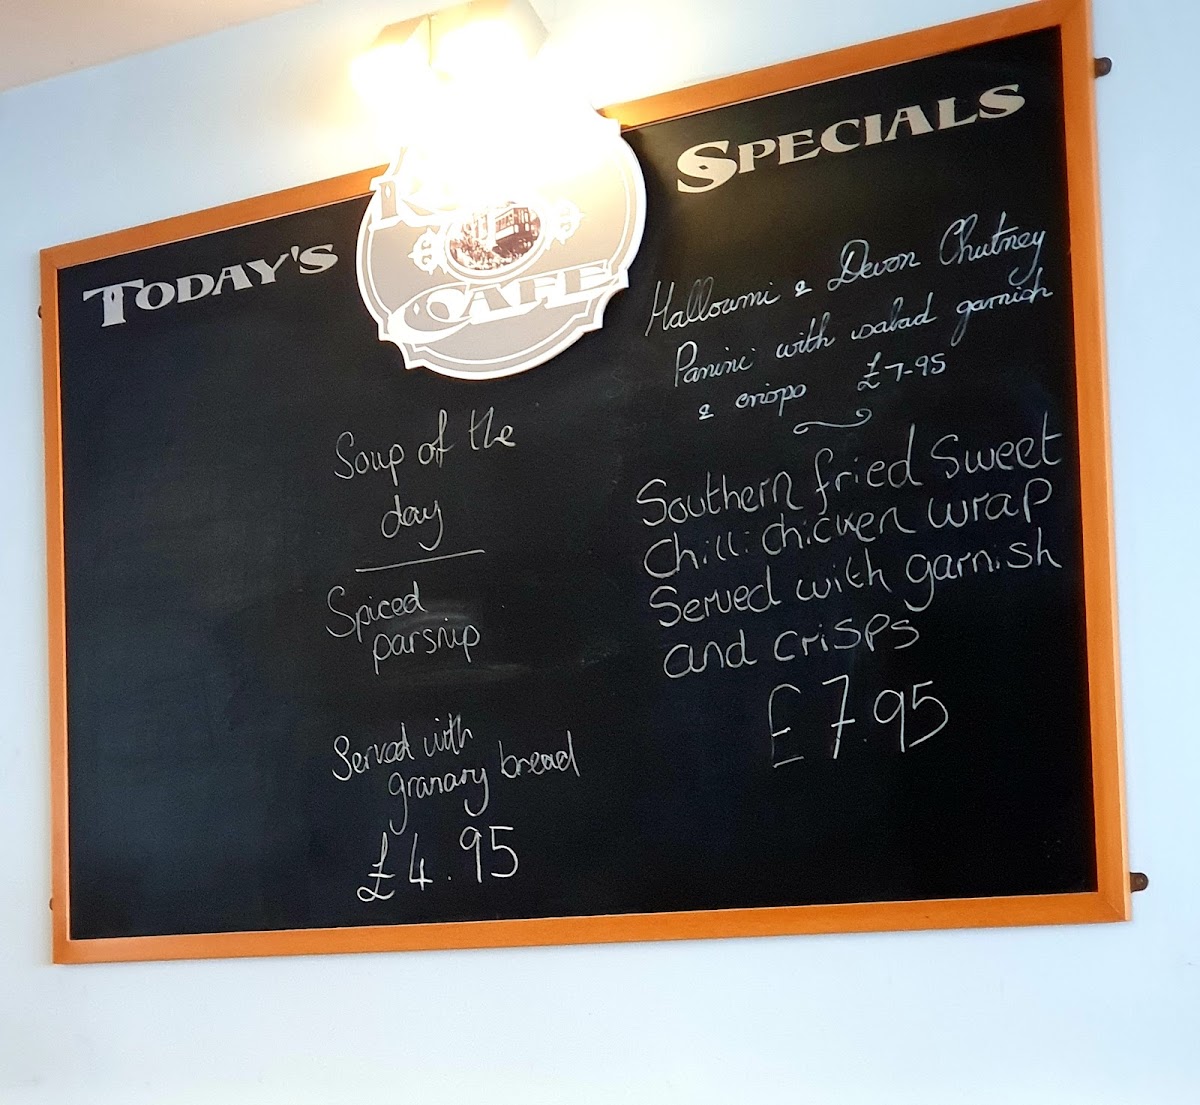 TODAY'S
SPECIALS
CAFE
Soup of the
day
Spiced
parsnip
Served with
granary bread
£4.95
Halloumi & Devon Chutney
Panini with salad garnish
& crisps £7-95
Southern fried Sweet
Chilli chicken wrap
Served with garnish
and crisps
£7.95